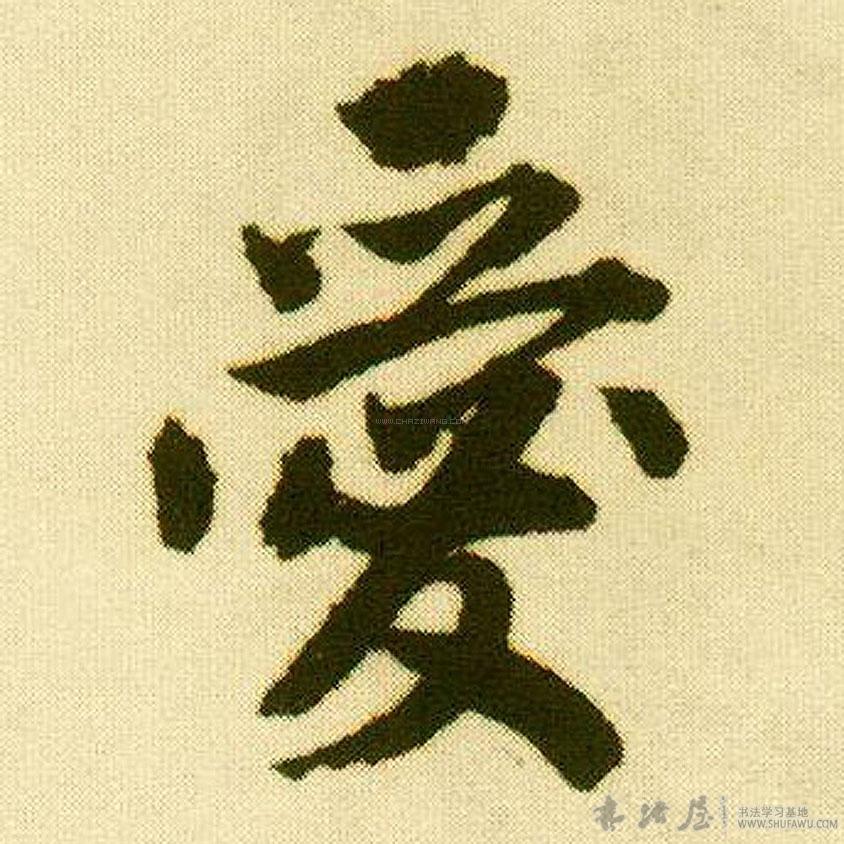 愛
WWW.CHAZIWANG.COM
书法屋
书法学习基地
WWW.SHUFAWU.COM